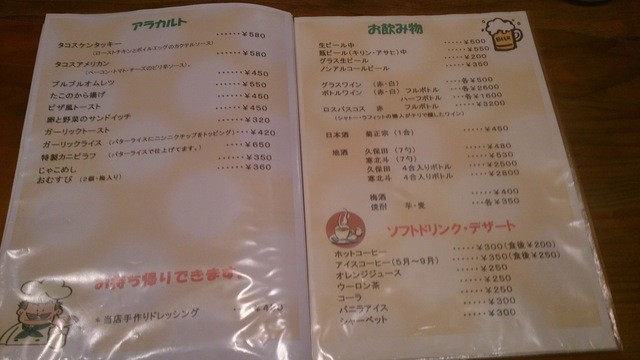 アラカルト
タコスケンタッキー ‥‥‥¥580
(ローストチキンとボイルエッグのカクテルソース)
タコスアメリカン ‥‥‥¥580
(ベーコン・トマト・チーズのピリ辛ソース)
プルプルオムレツ ‥‥‥¥450
たこのから揚げ ‥‥‥¥550
ピザ風トースト ‥‥‥¥450
卵と野菜のサンドイッチ ‥‥‥¥450
ガーリックトースト ‥‥‥¥320
ガーリックライス (バターライスにニンニクチップをトッピング)‥‥¥420
特製カニピラフ (バターライスで仕上げてます。) ‥‥‥¥650
じゃこめし ‥‥‥¥350
おむすび (2個・梅入り) ‥‥‥¥360
お持ち帰りできます
*当店手作りドレッシング
お飲み物
BEER
生ビール中 ‥‥‥¥500
瓶ビール(キリン・アサヒ)中 ‥‥‥¥550
グラス生ビール ‥‥‥¥200
ノンアルコールビール ‥‥‥¥350
グラスワイン (赤・白) ‥‥各¥500
ボトルワイン (赤・白) フルボトル ‥‥各¥2600
ハーフボトル ‥‥各¥1600
ロスパスコス 赤 フルボトル ‥‥‥¥3200
(シャトー・ラフィットの職人がチリで醸したワイン)
日本酒 菊正宗(1合) ‥‥‥¥450
地酒 久保田(7勺) ‥‥‥¥480
寒北斗(7勺) ‥‥‥¥530
久保田 4合入りボトル ‥‥‥¥2500
寒北斗 4合入りボトル ‥‥‥¥2800
梅酒 ‥‥‥¥400
焼酎 芋・麦 ‥‥各¥350
ソフトドリンク・デザート
ホットコーヒー ‥‥‥¥300(食後¥200)
アイスコーヒー(5月～9月) ‥‥‥¥350(食後¥250)
オレンジジュース ‥‥‥¥250
ウーロン茶 ‥‥‥¥250
コーラ ‥‥‥¥250
バニラアイス ‥‥‥¥300
シャーベット ‥‥‥¥300